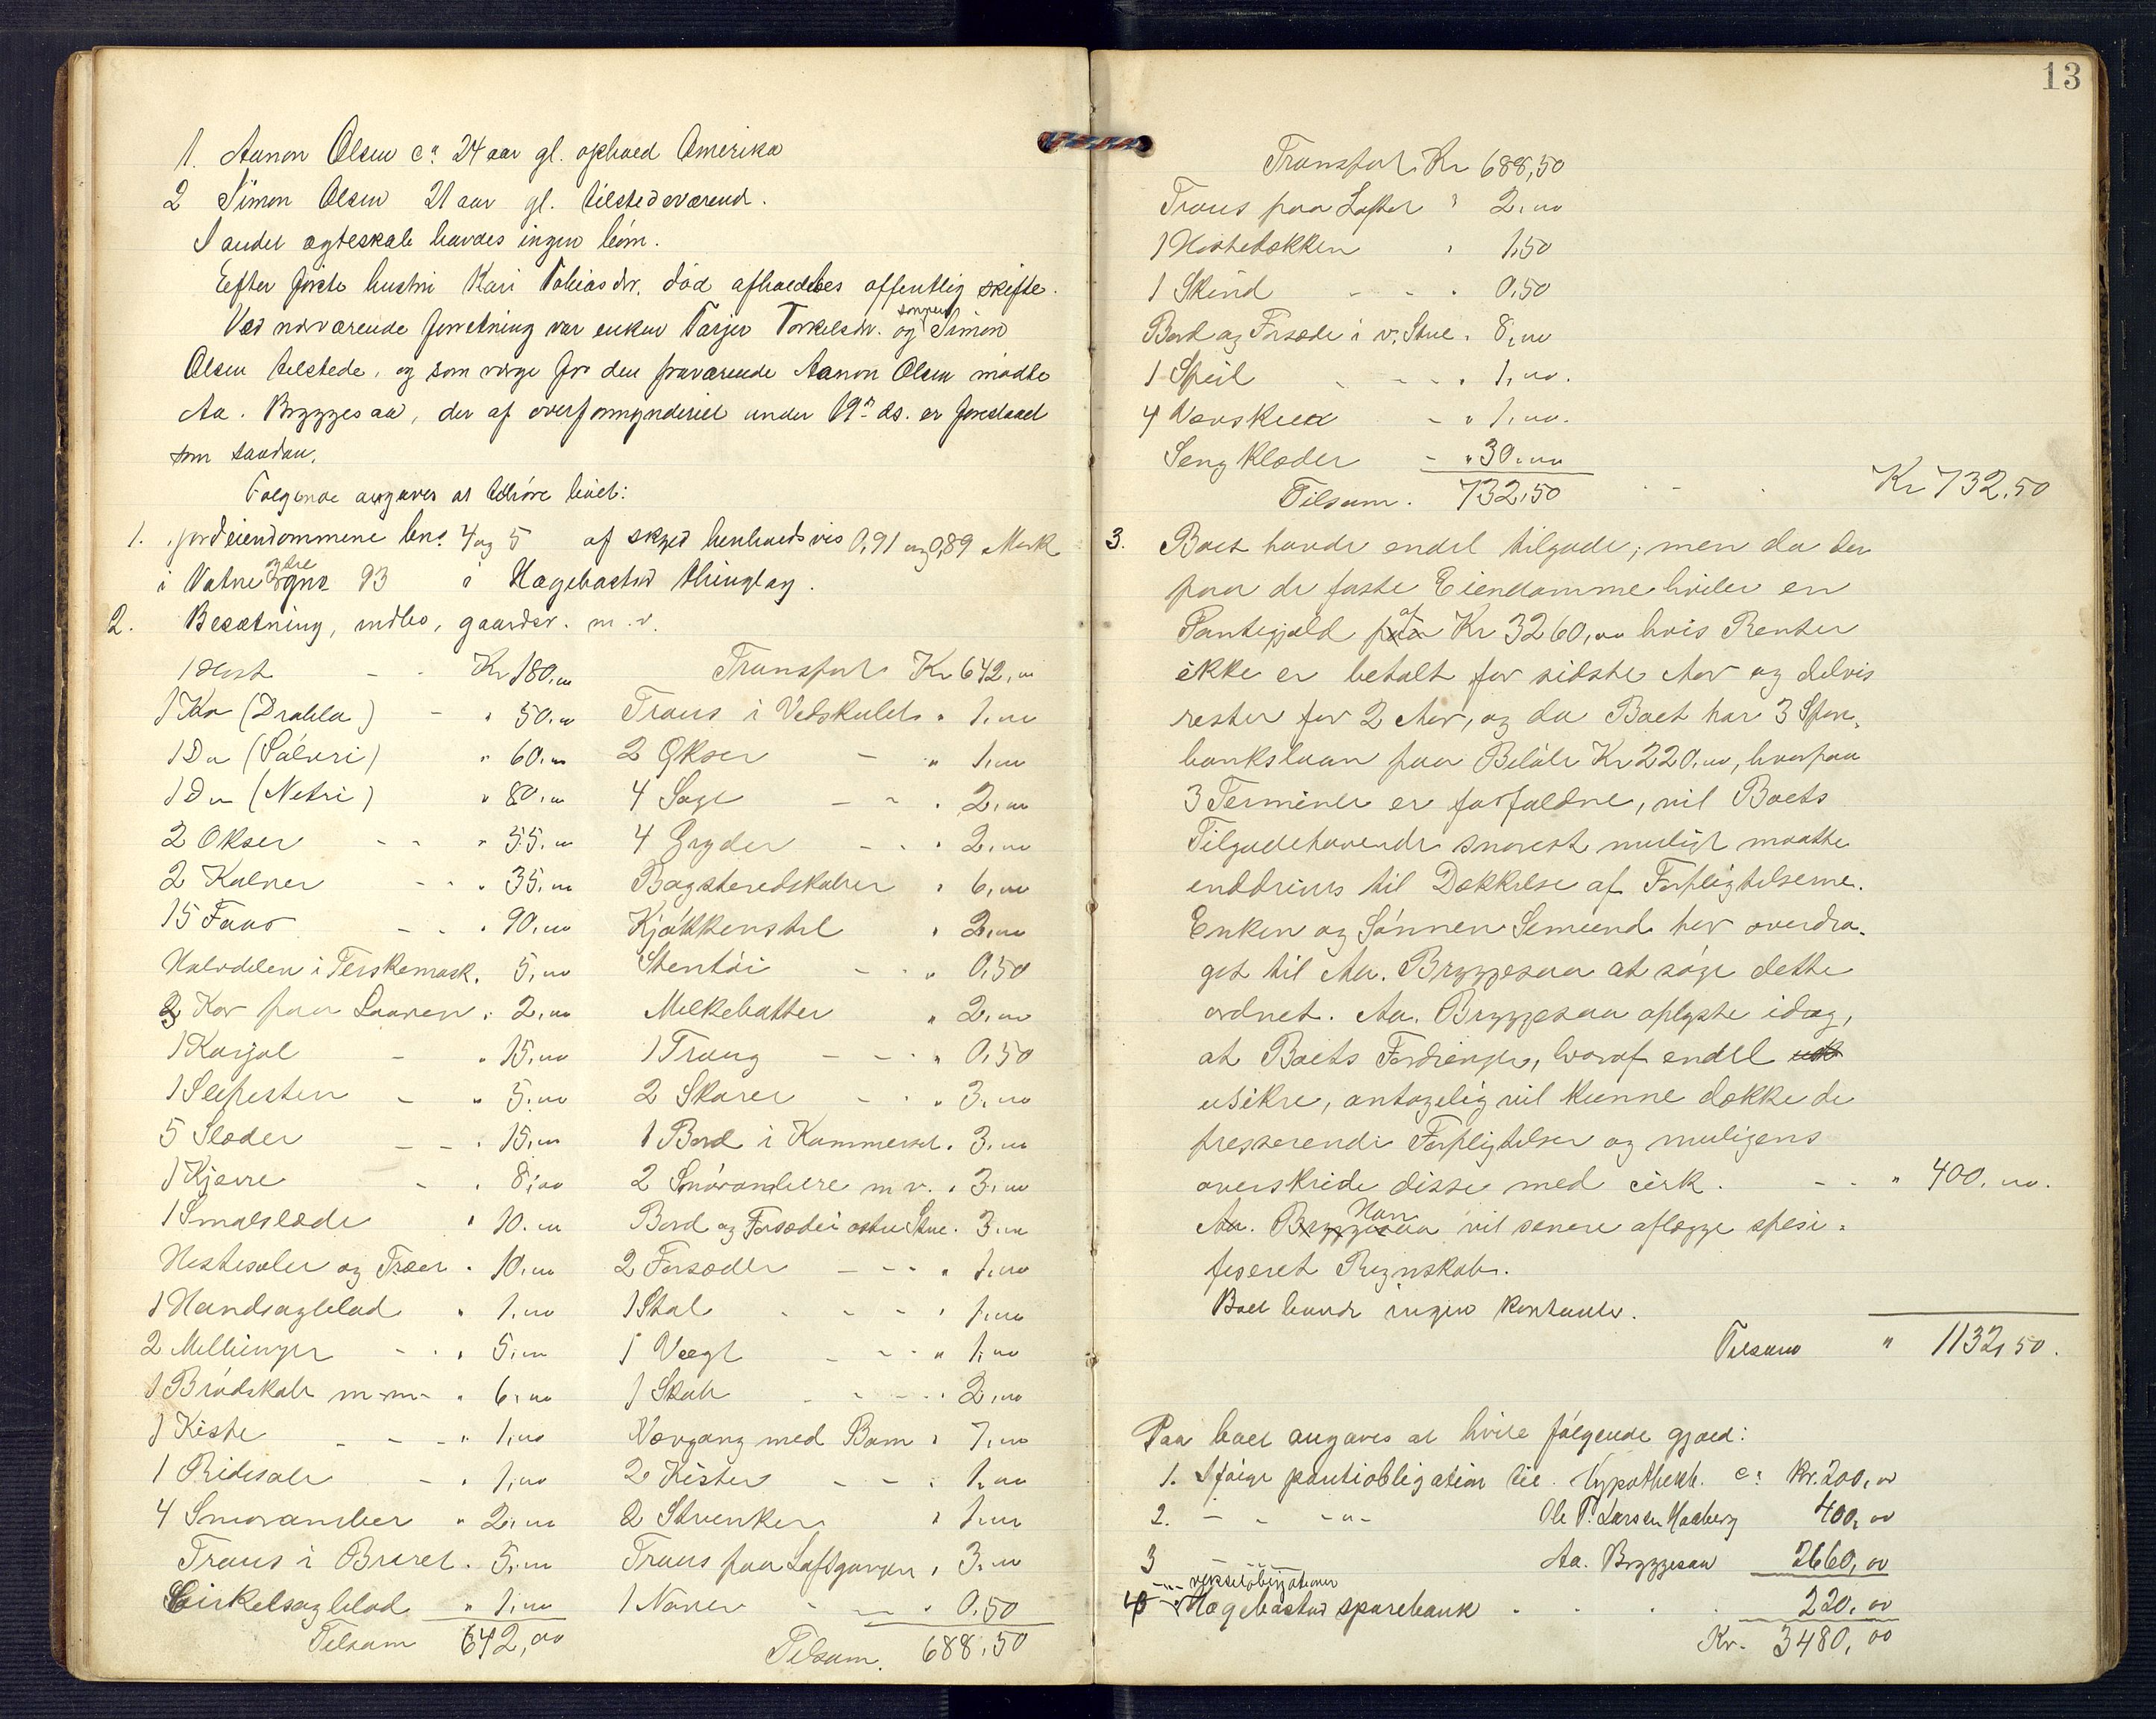 1. Aanon Olsen ca 24 aar gl. ophold Amerika
2 Simon Olsen 21 aar gl. tilstedeværend.
I andet ægteskab havdes ingen børn.
Efter første hustru Kari Tobiasdr. død afholdtes offentlig skifte.
Ved nærværende forretning var enken Tarjer Torkelsdr. og sønnen Simon
Olsen tilstede, og som verge for den fraværende Aanon Olsen mødte
Aa. Bryggesaa, der af overformynderiet under 19de ds. er foreslaaet
som saadan.
Følgende angaves at tilhøre boet:
1. Jordeiendommene bno. 4 og 5 af skyld henholdsvis 0,91 og 0,89 Mark
i Vatne øgdre gno 93 i Hægebostad thinglag.
2. Besætning, indbo, gaardsr. m. v.
1 Hest - - Kr 180,00
1 Ko (Drabla) - " 50,00
1 Do (Sølvri) " 60,00
1 Do (Netri) " 80,00
2 Okser - - " 55,00
2 Kalver - - " 35,00
15 Faar - - " 90,00
Halvdelen i Terskemask. 5,00
2 Kar paa Laaven " 2,00
1 Karjol - " 15,00
1 Slipesten - " 5,00
5 Slæder - - " 15,00
1 Kjerre - " 8,00
1 Smalslæde " 10,00
Hestesæler og Træer " 10,00
1 Handsagblad " 1,00
2 Mellinger - - " 5,00
1 Brødskab m.m. " 6,00
1 Kiste - - - " 1,00
1 Ridesale - " 1,00
4 Smøramber " 2,00
Traus i Buret " 5,00
Cirkelsagblad " 1,00
Tilsam 642,00
Transport Kr 642,00
Traus i Vedskulet " 1,00
2 Økser - " 1,00
4 Sage - - " 2,00
4 Gryder - - " 2,00
Bagstredskaber " 6,00
Kjøkkenstel " 2,00
Stentøi - - " 0,50
Melkebøtter " 2,00
1 Traug - - " 0,50
2 Skarer - - " 3,00
1 Bord i Kammerset " 3,00
2 Smørambere m v. " 3,00
Bord og Forsæde i østre Stue. 3,00
2 Forsæder - - - " 1,00
1 Stol - - - " 1,00
1 Vægt - - - " 1,00
1 Skab - - - 2,00
Vævgang med Bom " 7,00
2 Kister - - " 1,00
2 Strenker " 1,00
Traus paa Loftgangen " 3,00
1 Naver - - " 0,50
Tilsam. 688,50
13
Transport Kr 688,50
Traus paa Loftet " 2,00
1 Hestedækken " 1,50
1 Skind - - - 0,50
Bord og Forsæde i v. Stue " 8,00
1 Speil - - - " 1,00.
4 Vævskeer - " 1,00.
Sengklæder - " 30,00
Tilsam. 732,50 - - - Kr 732,50
3. Boet havde endel tilgode, men da der
paa de faste Eiendomme hviler en
Pantegjæld paa af Kr 3260,00 hvis Renter
ikke er betalt for sidste Aar og delvis
rester for 2 Aar, og da Boet har 3 Spare-
bankslaan paa Beløb Kr 220,00, hvorpaa
3 Terminer er forfaldne, vil Boets
Tilgodehavende snarest muligt maatte
inddrives til Dækkelse af Forpligtelserne.
Enken og Sønnen Simund har overdra-
get til Aa. Bryggesaa at søge dette
ordnet. Aa. Bryggesaa oplyste idag,
at Boets Fordringer, hvoraf endel
usikre, antagelig vil kunne dække de
presserende Forpligtelser og muligens
overskride disse med cirk. - - " 400,00.
Aa. Bryggesaa Han vil senere aflægge spesi-
fiseret Regnskab.
Boet havde ingen kontanter.
Tilsam " 1132,50.
Paa boet angaves at hvile følgende gjæld:
1. Ifølge pantobligation til Hypothekb. ca Kr. 200,00
2. - - -"- Ole T. Larsen Haaberg 400,00
3 - - - Aa. Bryggesaa 2660,00
4 -"- vekselobligationer Hægebostad sparebank . . . 220,00
Kr. 3480,00